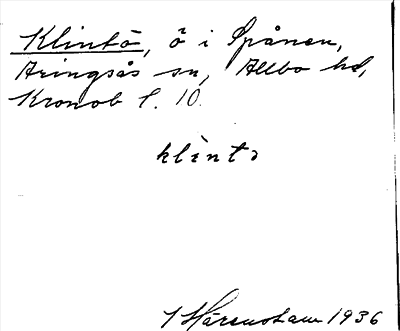 Klintö, ö i Spånen,
Aringsås sn, Allbo hd,
Kronob l. 10.
klìntɔ
1936